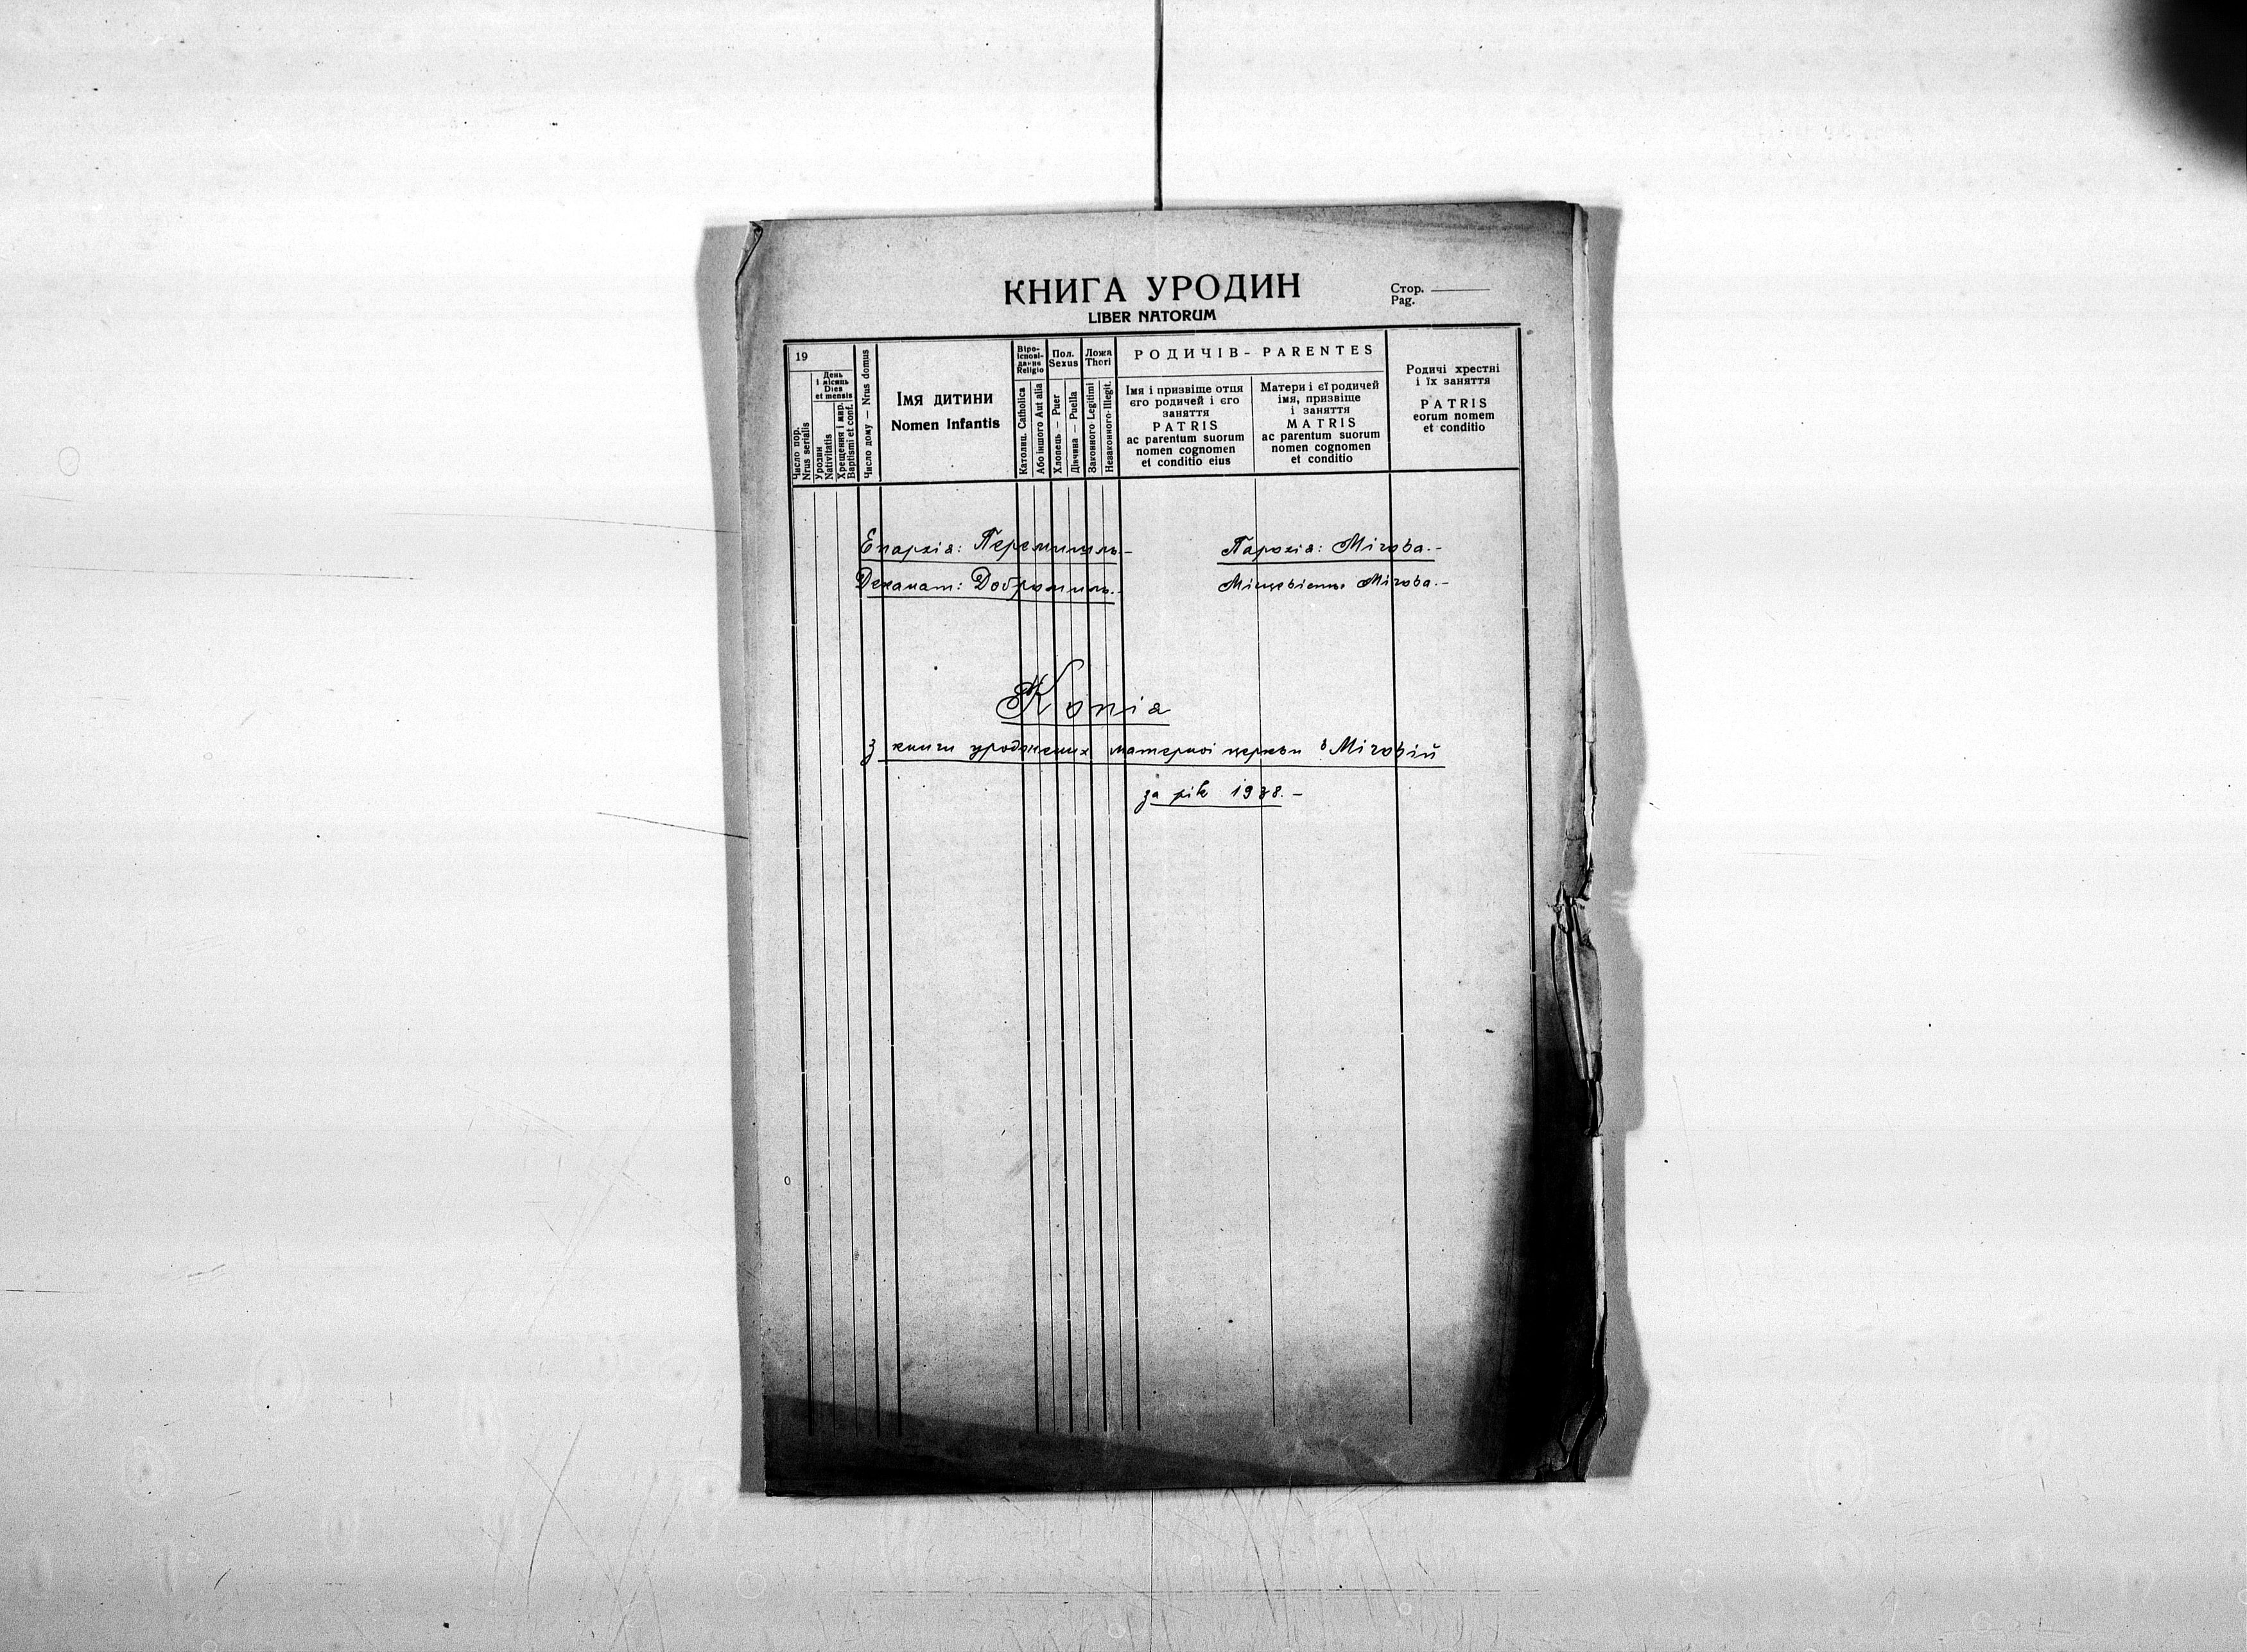 КНИГА УРОДИН
LIBER NATORUM
Стор.
Pag.
19
Число пор.
Nrus serialis
День
і місяць
Dies
et mensis
Уродин
Nativitatis
Хрещення і мвр.
Baptismi et conf.
Число дому — Nrus domus
Імя дитини
Nomen Infantis
Віро-
ісповi-
дання
Religio
Католиц. Catholica
Або іншого Aut alia
Пол.
Sexus
Хлопець — Puer
Дівчина — Puella
Ложа
Thori
Законного-Legitimi
Незаконного-Illegit.
РОДИЧІВ - PARENTES
Імя і призвіще отця
єго родичей і єго
заняття
PATRIS
ac parentum suorum
nomen cognomen
et conditio eius
Матери і єї родичей
імя, призвіще
і заняття
MATRIS
ac parentum suorum
nomen cognomen
et conditio
Родичі хрестні
і їх заняття
PATRIS
eorum nomem
et conditio
Епархія: Перемишль.-
Парохія: Мігова.-
Деканат: Добромиль.-
Місцевість Мігова.-
Копія
з книги уроджених матерної церкви в Міговій
за рік 1938.-